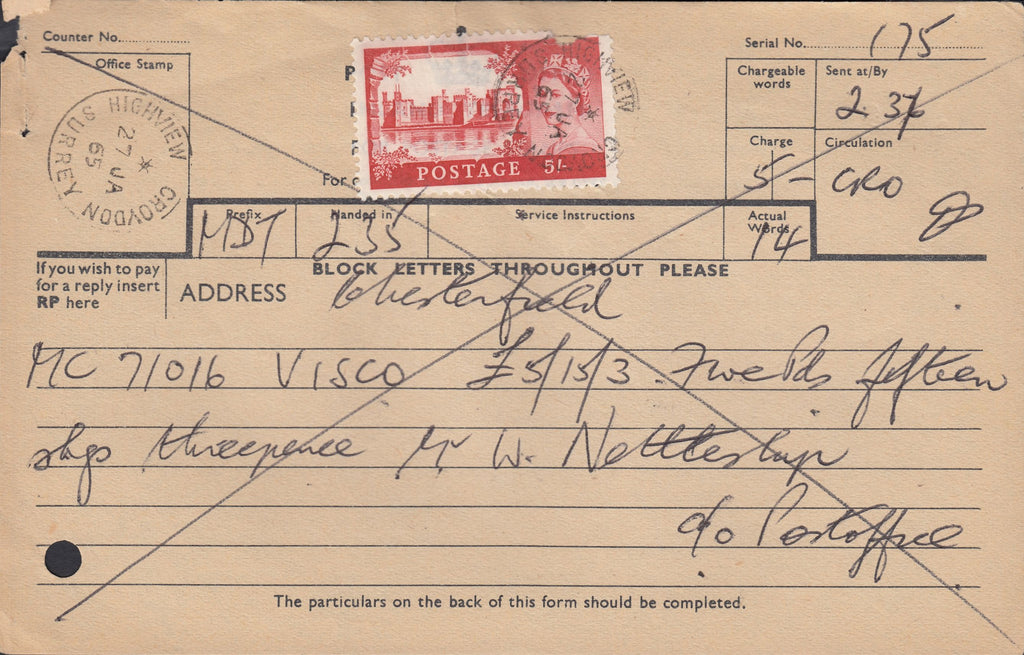 Counter No.
Office Stamp
HIGHVIEW CROYDON SURREY
27 JA
65
POSTAGE 5/-
HIGHVIEW
27 JA
65
For
Serial No. 175
Chargeable words
Sent at/By
2 36
Charge
5 -
Circulation
CRO
Prefix
MDT
Handed in
235
Service Instructions
Actual Words
14
If you wish to pay
for a reply insert
RP here
BLOCK LETTERS THROUGHOUT PLEASE
ADDRESS Chesterfield
MC 71016 VISCO £5/15/3. Five Pds fifteen
shgs threepence Mr W. Nettleship
c/o Postoffice
The particulars on the back of this form should be completed.